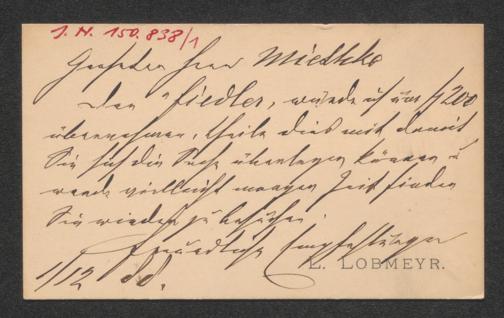 J. N. 150.838/1
Geehrter Herr Miethke
Den "Fiedler, würde ich um f 200
übernehmen, theile dies mit damit
Sie sich die Sache überlegen können u
werde vielleicht morgen Zeit finden
Sie wieder zu besuchen.
Freundliche Empfehlungen
L. LOBMEYR.
1/12 88.